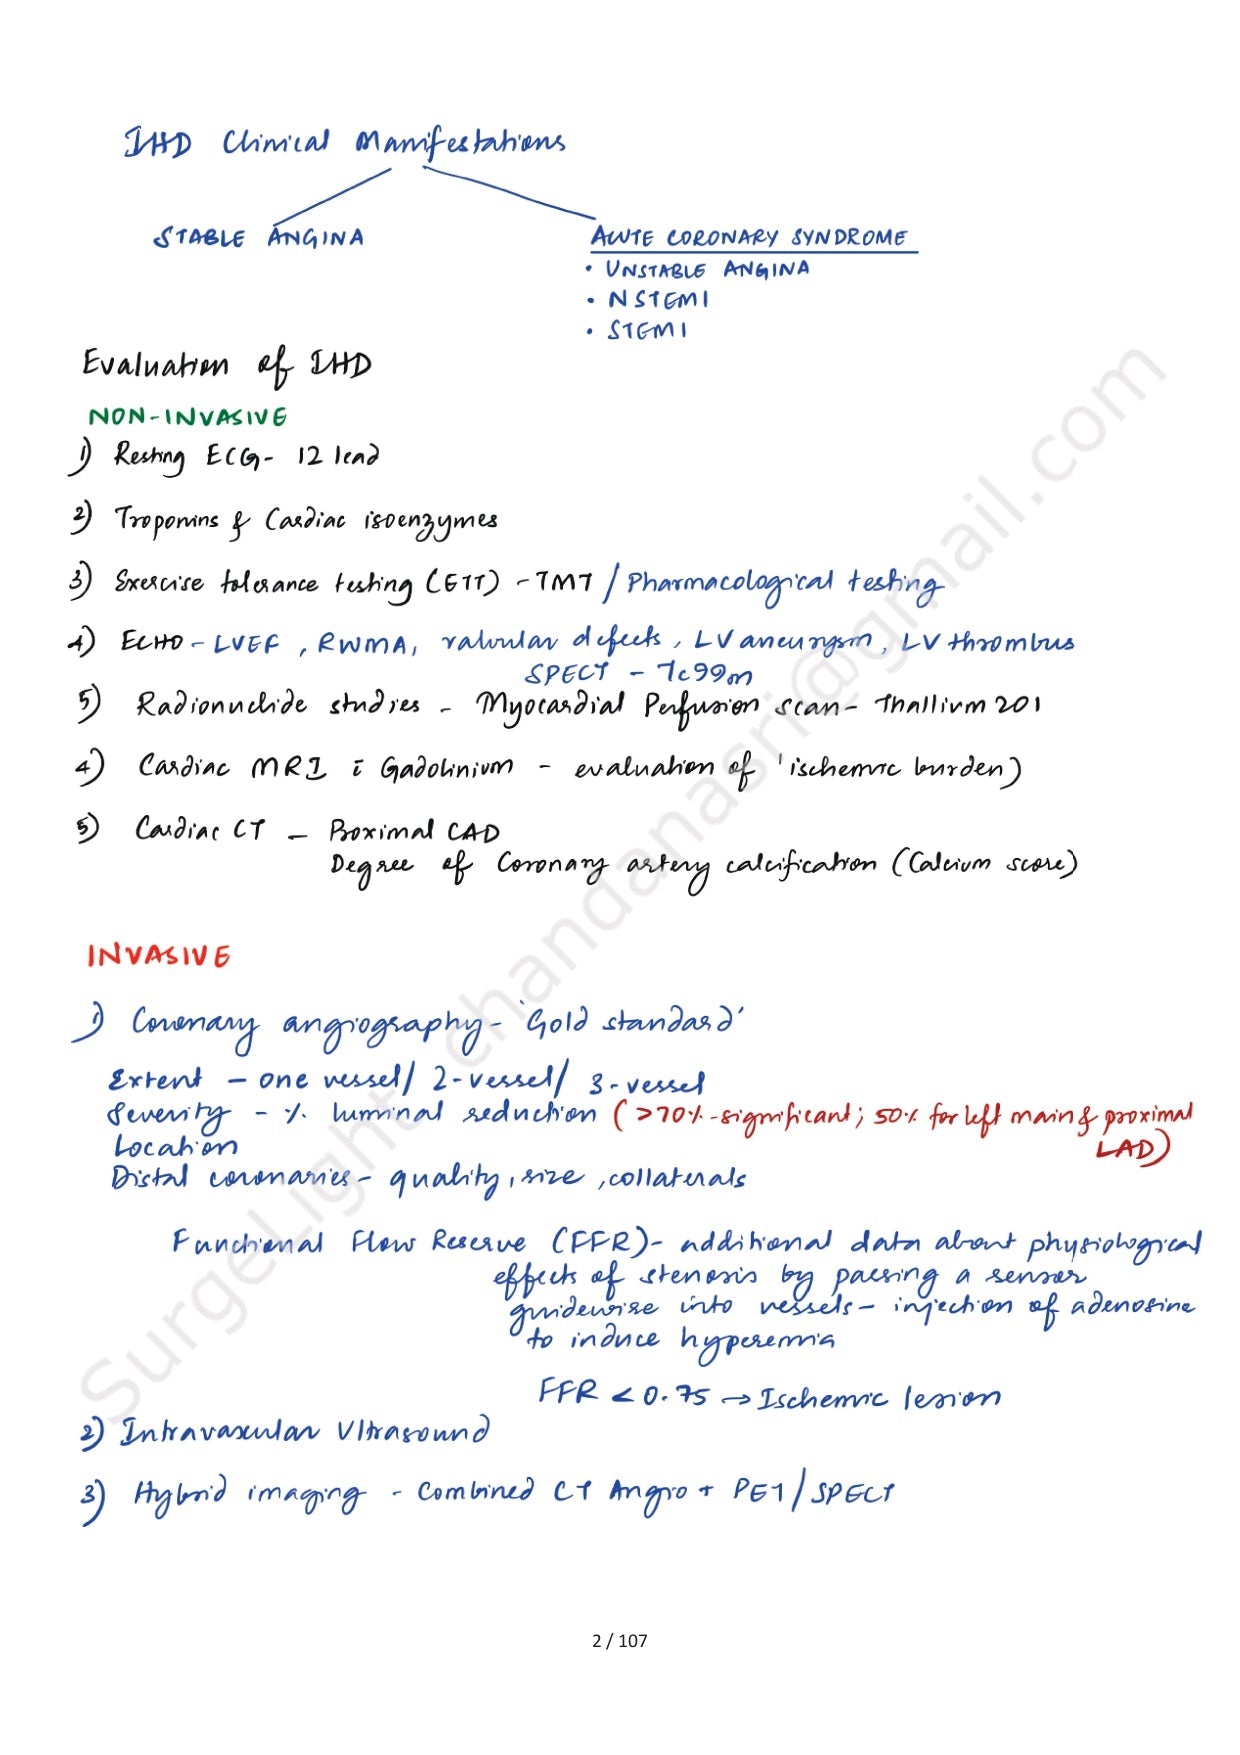 IHD Clinical Manifestations
STABLE ANGINA
ACUTE CORONARY SYNDROME
• UNSTABLE ANGINA
• NSTEMI
• STEMI
Evaluation of IHD
NON-INVASIVE
1) Resting ECG- 12 lead
2) Troponins & Cardiac isoenzymes
3) Exercise tolerance testing (ETT) - TMT / Pharmacological testing
4) ECHO - LVEF, RWMA, valvular defects, LV aneurysm, LV thrombus
SPECT - Tc99m
5) Radionuclide studies - Myocardial Perfusion scan- Thallium 201
4) Cardiac MRI c̄ Gadolinium - evaluation of 'ischemic burden)
5) Cardiac CT - Proximal CAD
Degree of Coronary artery calcification (Calcium score)
INVASIVE
1) Coronary angiography- 'Gold standard'
Extent - one vessel/ 2-vessel/ 3-vessel
Severity - % luminal reduction (>70%-significant; 50% for left main & proximal
LAD)
Location
Distal coronaries- quality, size, collaterals
Functional Flow Reserve (FFR)- additional data about physiological
effects of stenosis by passing a sensor
guidewire into vessels- injection of adenosine
to induce hyperemia
FFR < 0.75 → Ischemic lesion
2) Intravascular Ultrasound
3) Hybrid imaging - Combined CT Angio + PET/SPECT
SurgeLight chandanasri@gmail.com
2 / 107